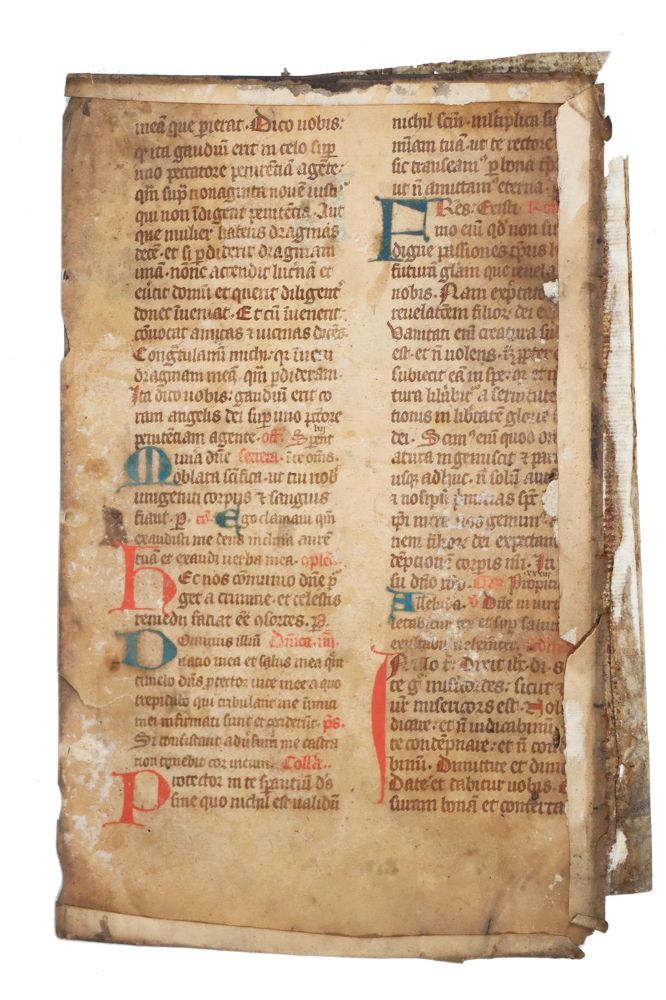 meā que perierat. Dico vobis:
q ita gaudiū erit in celo sup
uno peccatore penitētiā agēte:
qm̄ sup nonaginta nouē iusti
qui non īdigent penitētia. Aut
que mulier habens dragmas
decē. et si pdiderit dragmam
unā. nōne accendit lucnā et
euͥtit domū et querit diligent
donec īueniat. Et cū īuenerit
cōuocat amicas ⁊ uicinas dicēs.
Congͣtulamī michi. qͥ īueni
dragmam meā. qm̄ pdideram.
Ita dico uobis: gaudiū erit co
ram angelis dei sup uno pctore
penitētiam agente. off. Spent
Mu͞ia dn̄e secreta. in te om̄s.
oblata scīfica. ut tui nob
unigeniti corpus ⁊ sanguis
fiant. P. co. Ego clamaui qm̄
exaudisti me deus inclina aurē
tuā et exaudi uerba mea. 9ple
Et nos cōmunio dn̄e p
get a crimine. et celestis
remedii faciat eē 9sortes. P.
Dominus illūi Dn̄ica. iiii.
natio mea et salus mea qm̄
timebo dn̄s ptector uite mee a quo
trepidabo qui tribulant me īimici
mei infirmati sunt et ceciderūt. ps.
Si consistant adūsum me castra
non timebit cor meum. Colla.
Protector in te spantiū ds
sine quo nichil est ualidū
nichil scm̄. ml̄tiplica
mīam tuā. ut te rectore
sic transeamꝰ p bona
ut n̄ amittam eterna.
Fres: Existi
mo eni qd non
digne passiones tp̄ris
futurū glām que reuela
nobis. Nam exp̄tatio
reuelatōem filior dei
Vanitati eni creatura
est. et n̄ uolens. s; ppter
subiecit eā in spe. qͥ et
tura libabit a seruitute
tionis in libtatē glorie
dei. Scimꝰ eni quod
atura ingemiscit ⁊ par
usq adhuc. n̄ solū aut
⁊ nosipi pmicias sp̄c
ipi intra nos gemimꝰ
nem filior dei expectan
dēptionē corpis nr̄i. In
su dn̄o nr̄o. Gͣr Propici
Alleluya. v Dn̄e in uirt
letabitur rex et sup salut
exultabit uehementer.
In illo t. Dixit ihc di. s
te gͦ misicordes. sicut ⁊
ur̄ misericors est. Nol
dicare. et n̄ iudicabimī
te condēpnare. et n̄ con
bimī. Dimittite et dimi
Date et dabitur uobis.
suram bonā et conferta